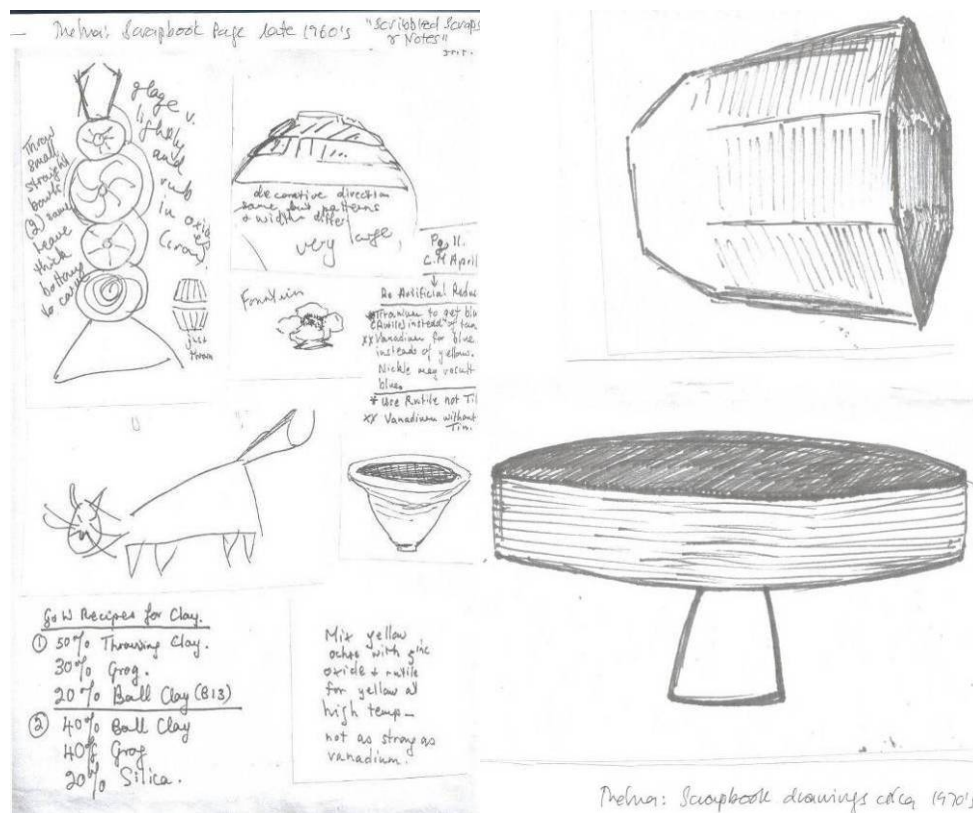 Thelma: Scrapbook Page late 1960's
"Scribbled Scraps
& Notes"
glaze v.
lightly
and
rub
in oxide
Throw
small
straight
bowls
(2) same
leave
thick
bottoms
to carve
just
thrown
decorative direction
same but patterns
& widths differ
very large
Fountain
Pg. 11.
C.M April
Artificial Reduc
Titanium to get blu
(Rutile) instead of tan
xx Vanadium for blue
instead of yellow.
Nickle may result
blue.
* Use Rutile not Ti
xx Vanadium without
Tin.
G & W Recipes for Clay.
① 50% Throwing Clay.
30% Grog.
20% Ball Clay (B13)
② 40% Ball Clay
40% Grog
20% Silica.
Mix yellow
ochre with zinc
oxide & rutile
for yellow at
high temp—
not as strong as
vanadium.
Thelma: Scrapbook drawings circa 1970's